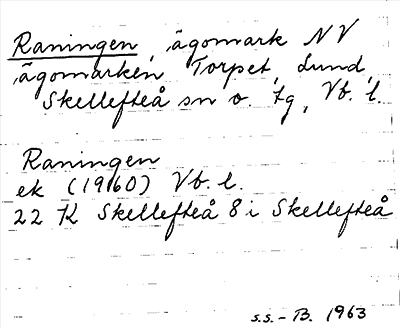 Raningen, ägomark NV
ägomarken Torpet, Lund,
Skellefteå sn o. tg, Vb. l.
Raningen
ek (1960) Vb. l.
22 K Skellefteå 8 i Skellefteå
s.s. - B. 1963